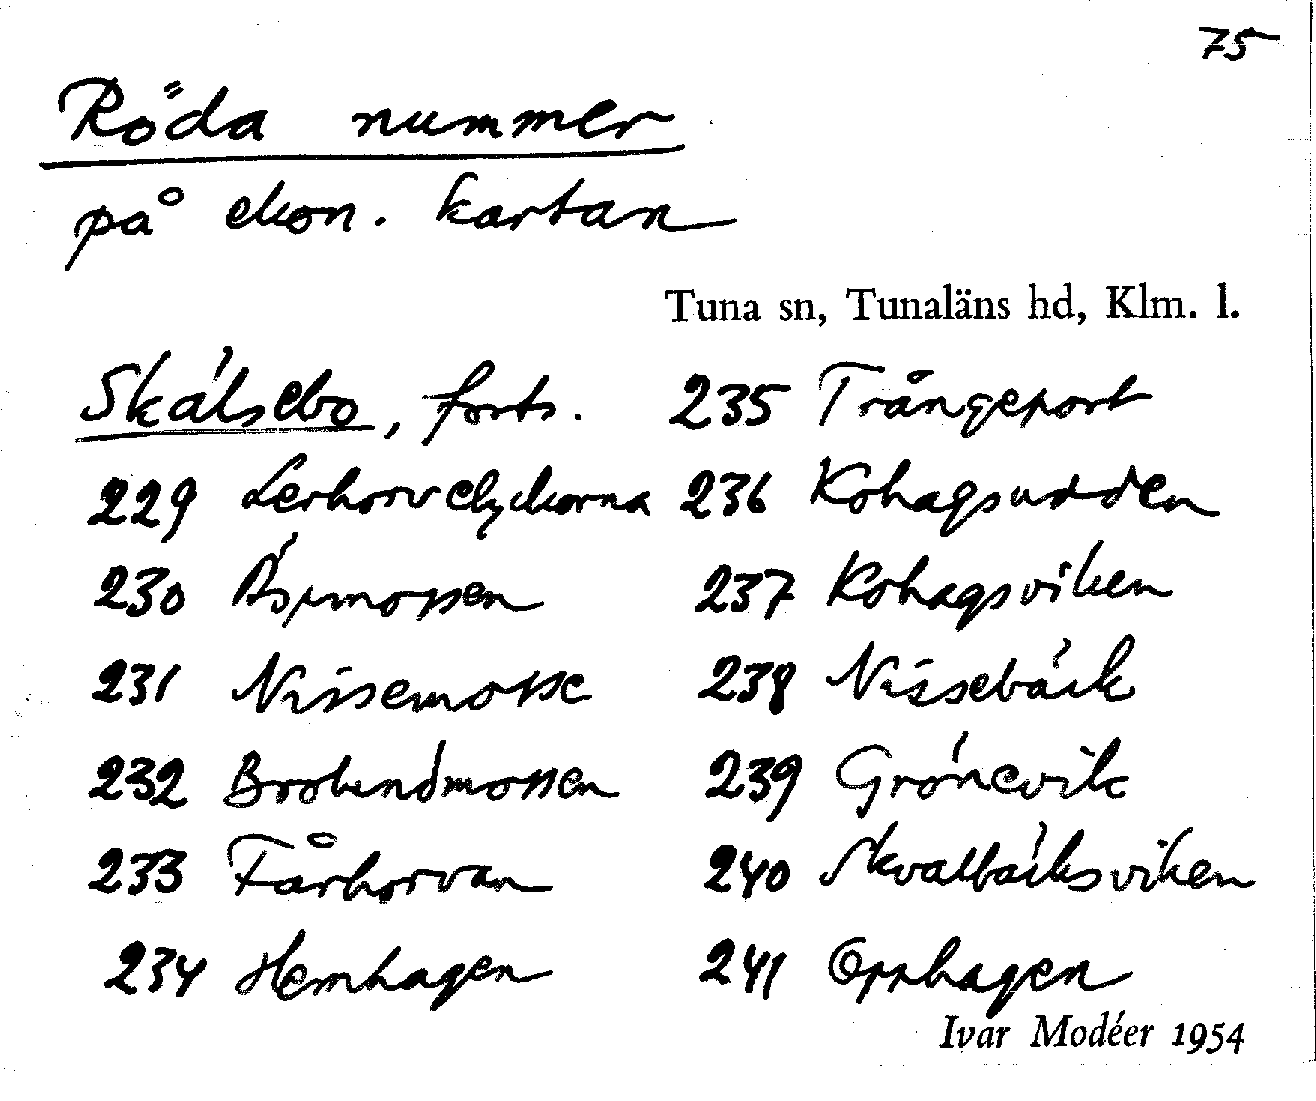 75
Röda nummer
på ekon. kartan
Tuna sn, Tunaläns hd, Klm. l.
Skälsebo, forts.
229 Lerhorvelyckorna
230 Äspmossen
231 Nissemosse
232 Brobundmossen
233 Fårhorvan
234 Hemhagen
235 Trångeport
236 Kohagsudden
237 Kohagsviken
238 Nissebäck
239 Grönevik
240 Skvalbäcksviken
241 Opphagen
Ivar Modéer 1954